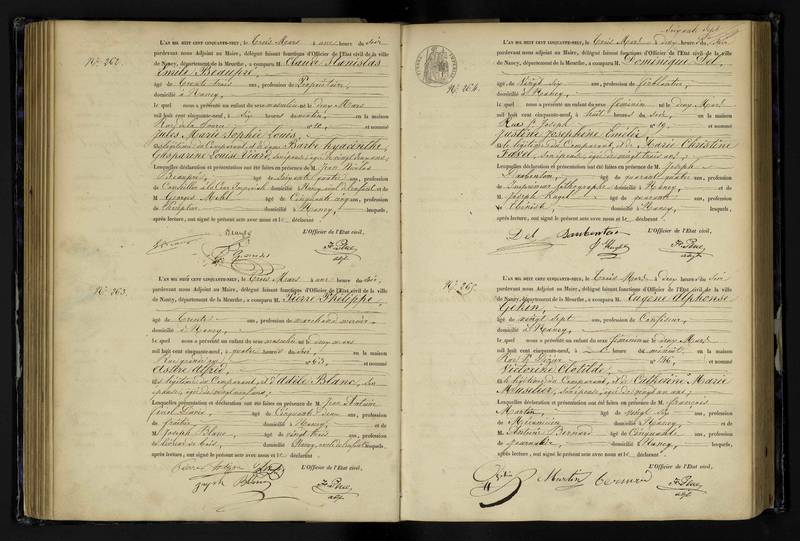 N° 262.
L'AN MIL HUIT CENT CINQUANTE-NEUF, le Trois Mars à une heure du Soir
pardevant nous Adjoint au Maire, délégué faisant fonctions d'Officier de l'Etat civil de la ville
de Nancy, département de la Meurthe, a comparu M. Claude Stanislas
Emile Beaupré,
âgé de Trente trois ans, profession de Propriétaire,
domicilié à Nancy,
le quel nous a présenté un enfant du sexe masculin né le deux Mars
mil huit cent cinquante-neuf, à Six heures du matin, en la maison
Rue de la n° 10, et nommé
Jules, Marie Sophie Louis,
Barbe hyacinthe,
Lesquelles déclaration et présentation ont été faites en présence de M. Jean Nicolas
Beaupré, âgé de Soixante quatre ans, profession
de Conseiller à la Cour Impériale domicilié à Nancy, et de
M. Georges âgé de Cinquante cinq ans, profession
de domicilié à Nancy, lesquels,
après lecture, ont signé le présent acte avec nous et le déclarant.
L'Officier de l'Etat civil,
adjt
N° 263.
L'AN MIL HUIT CENT CINQUANTE-NEUF, le Trois Mars à une heure du Soir,
pardevant nous Adjoint au Maire, délégué faisant fonctions d'Officier de l'Etat civil de la ville
de Nancy, département de la Meurthe, a comparu M. Pierre Philippe
âgé de Trente ans, profession de marchand
domicilié à Nancy,
le quel nous a présenté un enfant du sexe masculin né le deux mars
mil huit cent cinquante-neuf, à quatre heures du Soir, en la maison
n° 63, et nommé
fils légitime du Comparant, et d'Adèle Blanc, Son
épouse, âgée de vingt
Lesquelles déclaration et présentation ont été faites en présence de M. Jean Antoine
âgé de Cinquante deux ans, profession
de domicilié à Nancy, et de
M. Joseph Blanc âgé de vingt trois ans, profession
domicilié à Nancy, lesquels,
après lecture, ont signé le présent acte avec nous et le déclarant
L'Officier de l'Etat civil,
Joseph Blanc
adjt
Soixante sept
N° 264.
L'AN MIL HUIT CENT CINQUANTE-NEUF, le Trois Mars à deux heures du Soir
pardevant nous Adjoint au Maire, délégué faisant fonctions d'Officier de l'Etat civil de la ville
de Nancy, département de la Meurthe, a comparu M. Dominique Del,
âgé de Vingt Six ans, profession de ferblantier,
domicilié à Nancy,
le quel nous a présenté un enfant du sexe féminin né le deux Mars
mil huit cent cinquante-neuf, à huit heures du Soir, en la maison
Rue St Joseph, n° 19, et nommé
Justine Joséphine Emilie,
fille légitime du Comparant, et de Marie Christine
Son épouse, âgée de vingt trois ans;
Lesquelles déclaration et présentation ont été faites en présence de M. Joseph
Barbentan, âgé de quarante quatre ans, profession
de Imprimeur lithographe domicilié à Nancy, et de
M. Joseph âgé de quarante ans, profession
de Ebéniste, domicilié à Nancy, lesquels,
après lecture, ont signé le présent acte avec nous et le déclarant.
L'Officier de l'Etat civil,
Del
adjt
N° 265
L'AN MIL HUIT CENT CINQUANTE-NEUF, le Trois Mars à deux heures du Soir
pardevant nous Adjoint au Maire, délégué faisant fonctions d'Officier de l'Etat civil de la ville
de Nancy, département de la Meurthe, a comparu M. Eugène Alphonse
Gehin,
âgé de vingt Sept ans, profession de Confiseur,
domicilié à Nancy,
le quel nous a présenté un enfant du sexe féminin né le deux Mars
mil huit cent cinquante-neuf, à heure de minuit, en la maison
Rue St Dizier n° 136, et nommé
Victorine Clotilde,
fille légitime du Comparant, et de Catherine Marie
Son épouse, âgée de vingt un ans;
Lesquelles déclaration et présentation ont été faites en présence de M. François
Martin, âgé de Vingt Six ans, profession
de Mécanicien domicilié à Nancy, et de
M. Antoine Bernard âgé de Cinquante ans, profession
de Journalier, domicilié à Nancy, lesquels,
après lecture, ont signé le présent acte avec nous et le déclarant.
L'Officier de l'Etat civil,
Gehin Martin
adjt